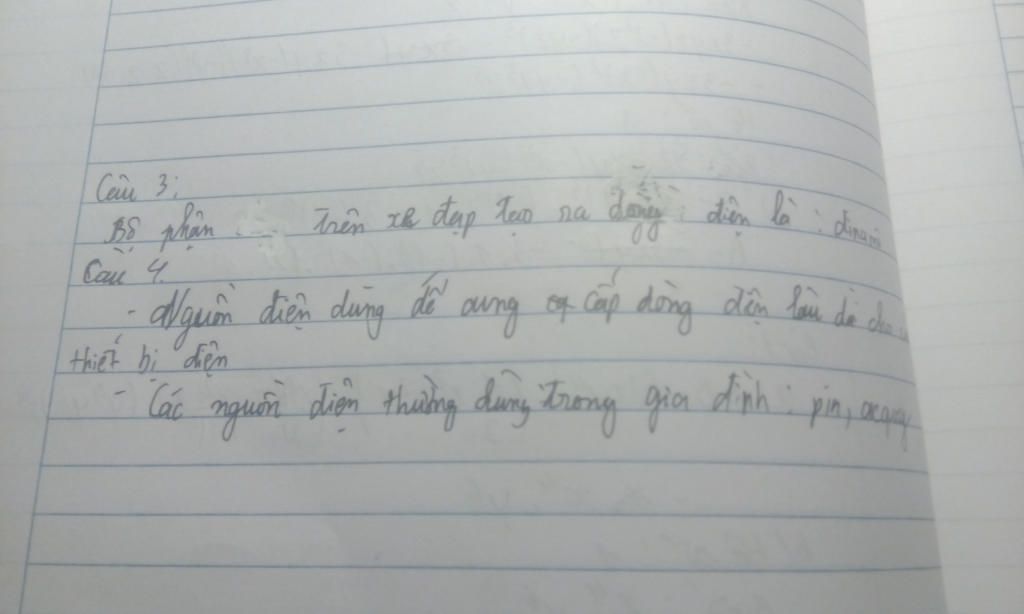 Câu 3:
Bộ phận trên xe đạp tạo ra dòng điện là : đinamô
Câu 4.
- Nguồn điện dùng để cung cấp dòng điện lâu dà cho
thiết bị điện
- Các nguồn điện thường dùng trong gia đình : pin, acquy